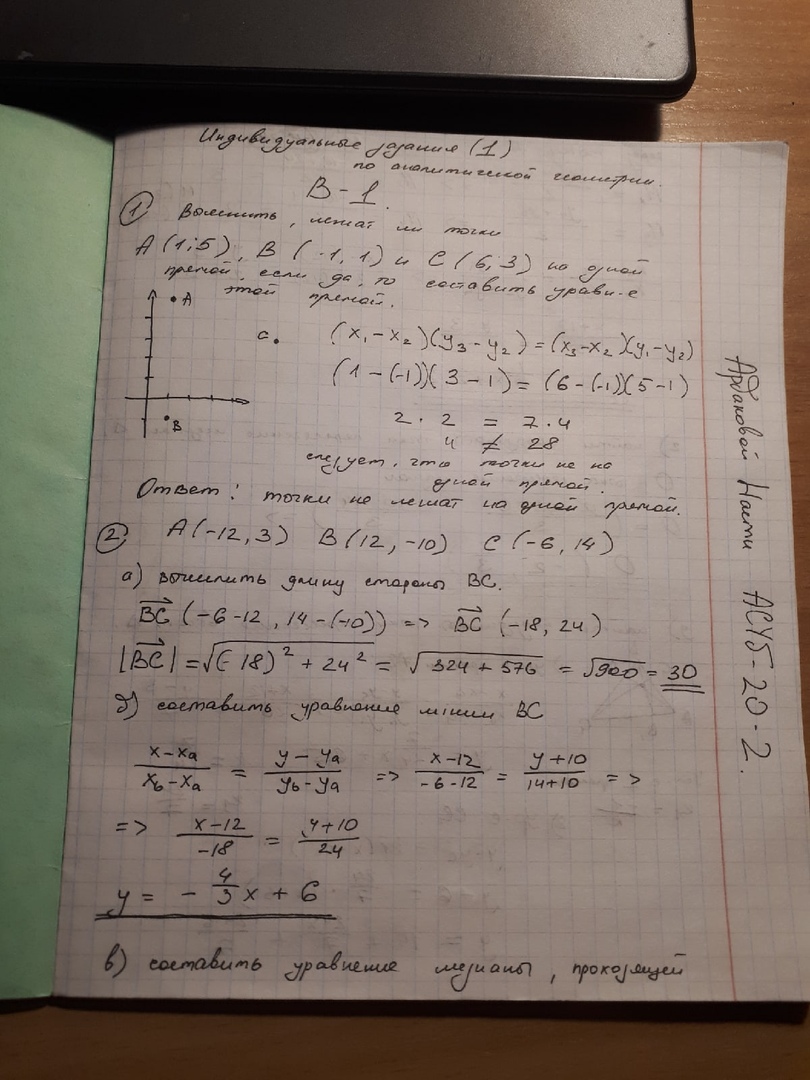 Индивидуальные задания (1)
по аналитической геометрии.
В-1.
① Выяснить, лежат ли точки
A(1;5), B(-1,1) и C(6;3) на одной
прямой, если да, то составить уравн-е
этой прямой.
A
C
B
(x₁-x₂)(y₃-y₂)=(x₃-x₂)(y₁-y₂)
(1-(-1))(3-1)=(6-(-1))(5-1)
2·2 = 7·4
4 ≠ 28
следует, что точки не на
одной прямой.
Ответ: точки не лежат на одной прямой.
② A(-12,3) B(12,-10) C(-6,14)
а) вычислить длину стороны BC.
BC(-6-12, 14-(-10)) => BC(-18, 24)
|BC|=√((-18)²+24²)=√(324+576)=√900=30
б) составить уравнение линии BC
(x-xₐ)/(x_b-xₐ) = (y-yₐ)/(y_b-yₐ) => (x-12)/(-6-12) = (y+10)/(14+10) =>
=> (x-12)/(-18) = (y+10)/24
y = -4/3x + 6
в) составить уравнение медианы, проходящей
Ардаковой Насти АСУб-20-2.